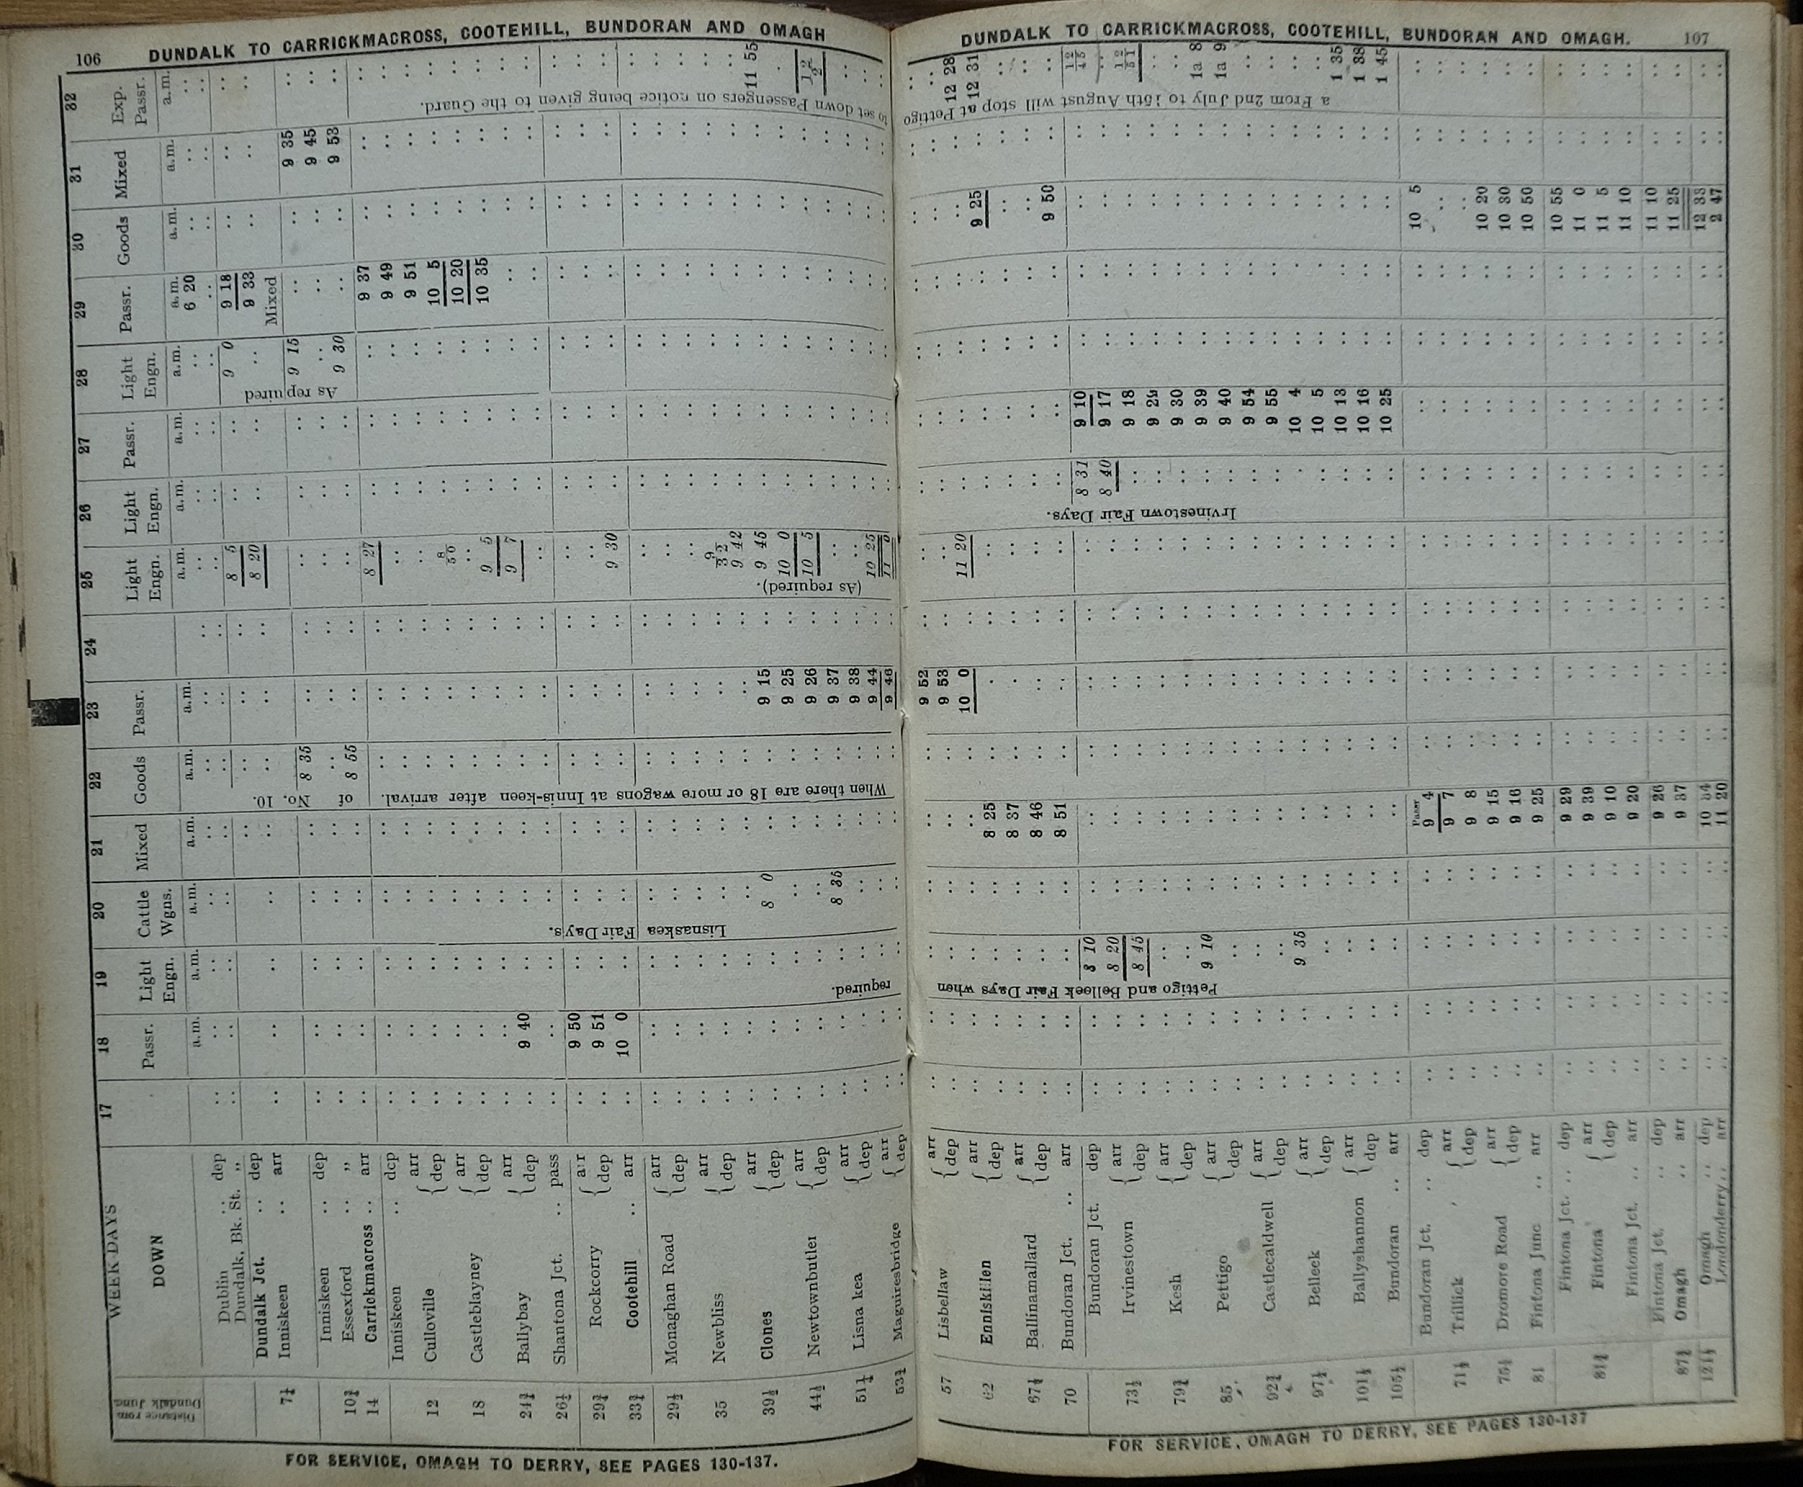 106 DUNDALK TO CARRICKMACROSS, COOTEHILL, BUNDORAN AND OMAGH
Distance from Dundalk Junc.
WEEK-DAYS
DOWN
17 18 19 20 21 22 23 24 25 26 27 28 29 30 31 32
Passr. Light Engn. Cattle Wgns. Mixed Goods Passr. Light Engn. Light Engn. Passr. Light Engn. Passr. Goods Mixed Exp. Passr.
a.m. a.m. a.m. a.m. a.m. a.m. a.m. a.m. a.m. a.m. a.m. a.m. a.m. a.m.
Dublin .. dep 6 20
Dundalk, Bk. St. „
Dundalk Jct. .. dep 8 5 9 0 9 18
7¼ Inniskeen .. arr 8 20 9 33
Mixed
Inniskeen .. dep 8 35 9 15 9 35
10¾ Essexford .. „ 9 45
14 Carrickmacross .. arr 8 55 9 30 9 53
Inniskeen .. dep 8 27 9 37
12 Culloville { arr 9 49
dep 9 51
18 Castleblayney { arr 8 50 10 5
dep 10 20
24¾ Ballybay { arr 9 5 10 35
dep 9 40 9 7
26¼ Shantona Jct. .. pass
29¾ Rockcorry { arr 9 50
dep 9 51
33¾ Cootehill .. arr 10 0 9 30
29½ Monaghan Road { arr
dep
35 Newbliss { arr
dep 9 42
39½ Clones { arr 9 45 11 55
dep 8 0 9 15 10 0
44½ Newtownbutler { arr 9 25 10 5
dep 9 26 12 2
51¼ Lisnaskea { arr 8 35 9 37
dep 9 38
53¾ Maguiresbridge { arr 9 44 10 25
dep 9 46
required.
Lisnaskea Fair Days.
When there are 18 or more wagons at Innis-keen after arrival of No. 10.
(As required).
As required
to set down Passengers on notice being given to the Guard.
FOR SERVICE, OMAGH TO DERRY, SEE PAGES 130-137.
DUNDALK TO CARRICKMACROSS, COOTEHILL, BUNDORAN AND OMAGH. 107
57 Lisbellaw { arr 9 52
dep 9 53 12 28
62 Enniskillen { arr 10 0 11 20 12 31
dep 8 25 9 25
67¼ Ballinamallard { arr 8 37
dep 8 46
70 Bundoran Jct. .. arr 8 51 9 50
Bundoran Jct. dep 8 10 8 31 9 10 12 45
73½ Irvinestown { arr 8 20 8 40 9 17
dep 8 45 9 18 12 51
79¾ Kesh { arr 9 29
dep 9 30
85 Pettigo { arr 9 10 9 39 1a 8
dep 9 40 1a 9
92¾ Castlecaldwell { arr 9 54
dep 9 55
97½ Belleek { arr 9 35 10 4
dep 10 5
101½ Ballyshannon { arr 10 13 1 35
dep 10 16 1 38
105½ Bundoran .. arr 10 25 1 45
Bundoran Jct. .. dep Passr 9 4 10 5
71½ Trillick { arr 9 7
dep 9 8
75½ Dromore Road { arr 9 15 10 20
dep 9 16 10 30
81 Fintona Junc .. arr 9 25 10 50
Fintona Jct. .. dep 9 29 10 55
81¾ Fintona { arr 9 39 11 0
dep 9 10 11 5
Fintona Jct. .. arr 9 20 11 10
Fintona Jct. .. dep 9 26 11 10
87¾ Omagh .. arr 9 37 11 25
Omagh .. dep 10 34 12 33
121½ Londonderry .. arr 11 20 2 47
Pettigo and Belleek Fair Days when
Irvinestown Fair Days.
a From 2nd July to 15th August will stop at Pettigo
FOR SERVICE, OMAGH TO DERRY, SEE PAGES 130-137